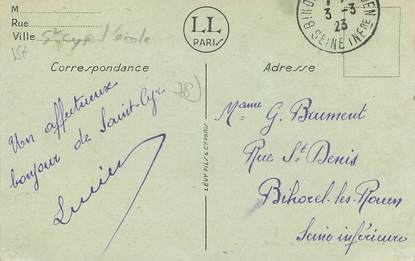 M
Rue
Ville St Cyr l'école
LL
PARIS
3 -3
23
SEINE INFRE
Correspondance
Adresse
78
Un affectueux
bonjour de Saint-Cyr
Lucien
LÉVY FILS & Cie PARIS
Mame G. Brument
Rue St Denis
Bihorel-les-Rouen
Seine inférieure